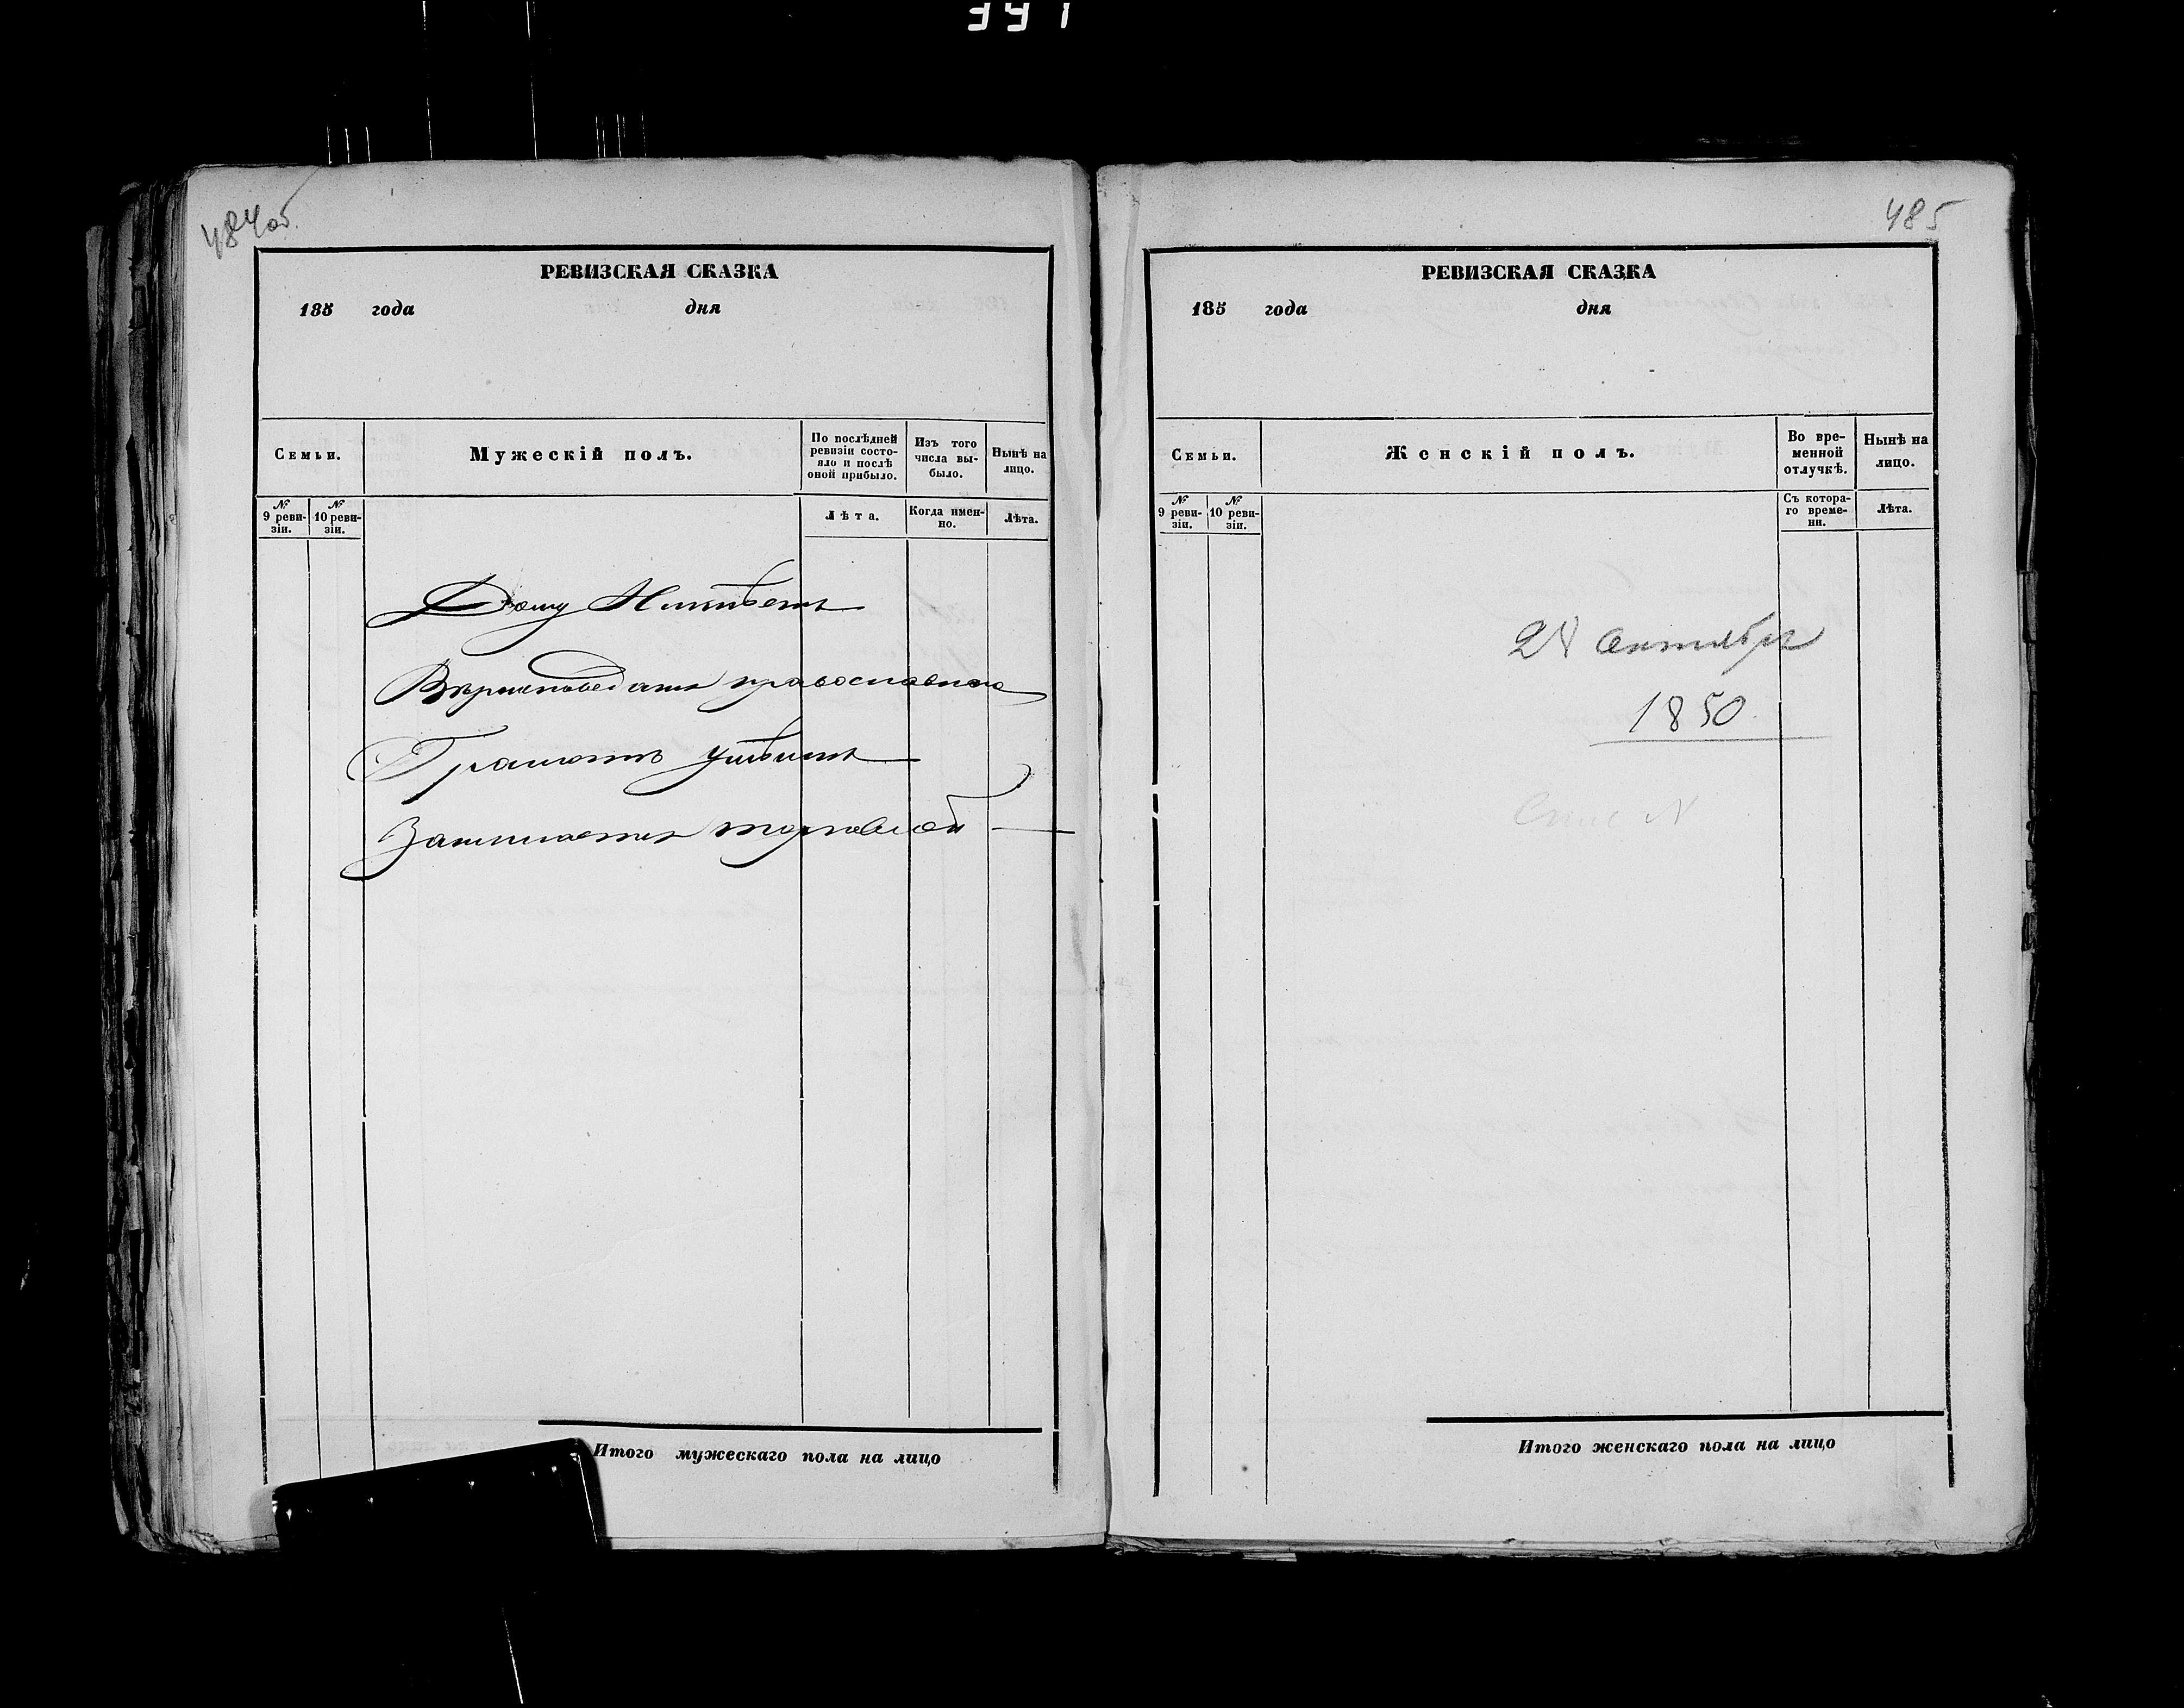 484об.
РЕВИЗСКАЯ СКАЗКА
185 года дня
Семьи.
Мужескій полъ.
По послѣдней ревизіи состояло и послѣ оной прибыло.
Изъ того числа выбыло.
Нынѣ на лицо.
№ 9 ревизіи.
№ 10 ревизіи.
Лѣта.
Когда именно.
Лѣта.
Дому Неимѣетъ
Вѣроисповеданія православнаго
Грамотѣ умѣетъ
Занимается торговлей
Итого мужескаго пола на лицо
485
РЕВИЗСКАЯ СКАЗКА
185 года дня
Семьи.
Женскій полъ.
Во временной отлучкѣ.
Нынѣ на лицо.
№ 9 ревизіи.
№ 10 ревизіи.
Съ котораго времени.
Лѣта.
октября
1850
Итого женскаго пола на лицо